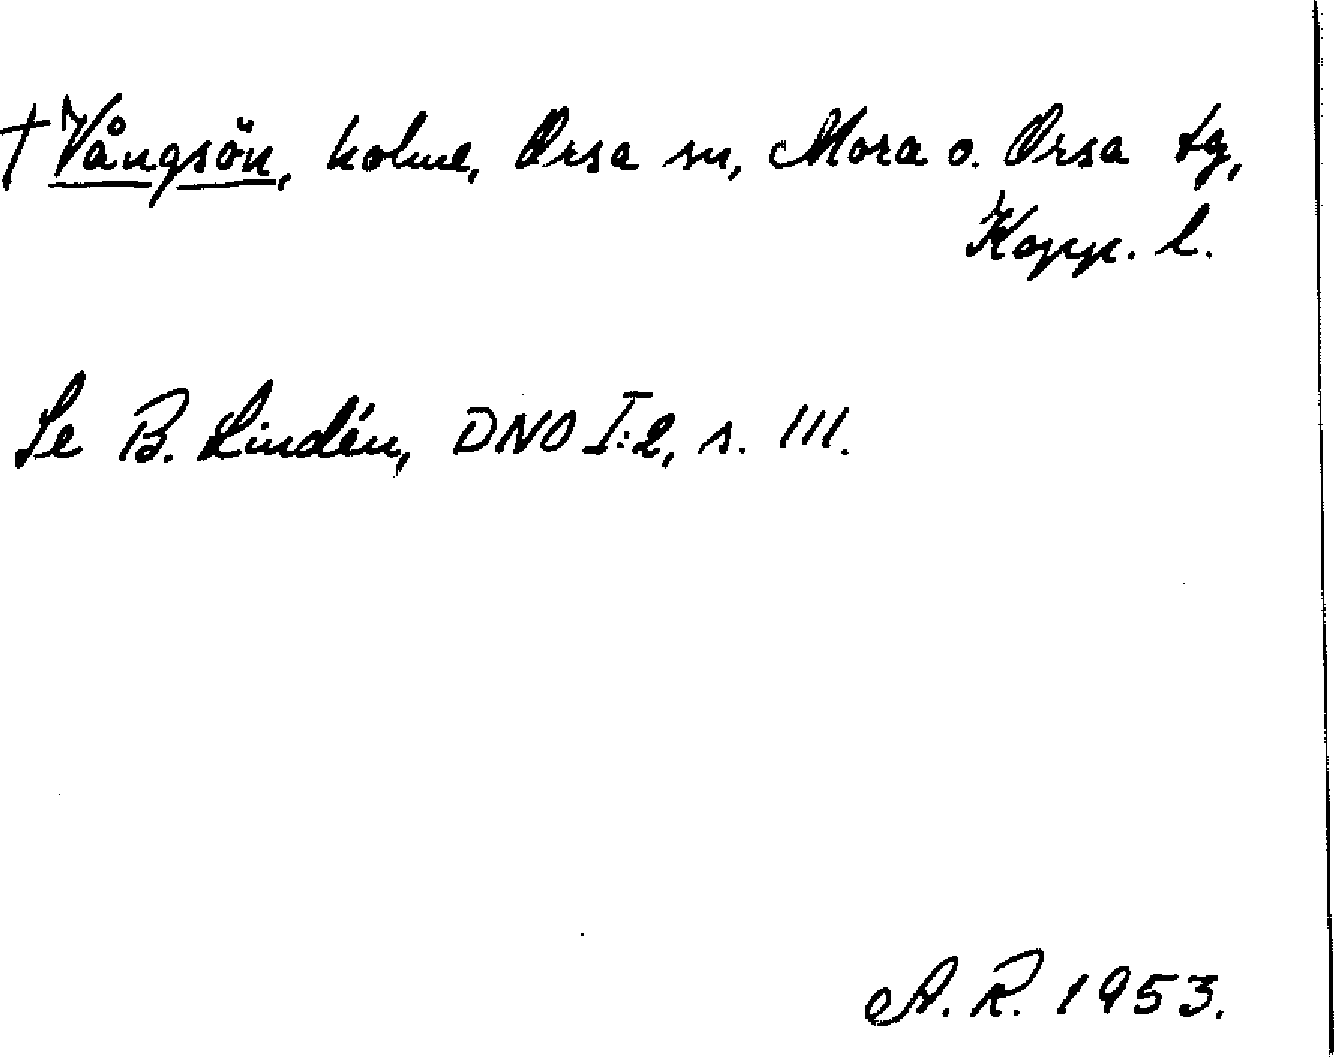 † Vångsön, holme, Orsa sn, Mora o. Orsa tg,
Kopp. l.
Se B. Lindén, DNO I:2, s. 111.
A. R. 1953.